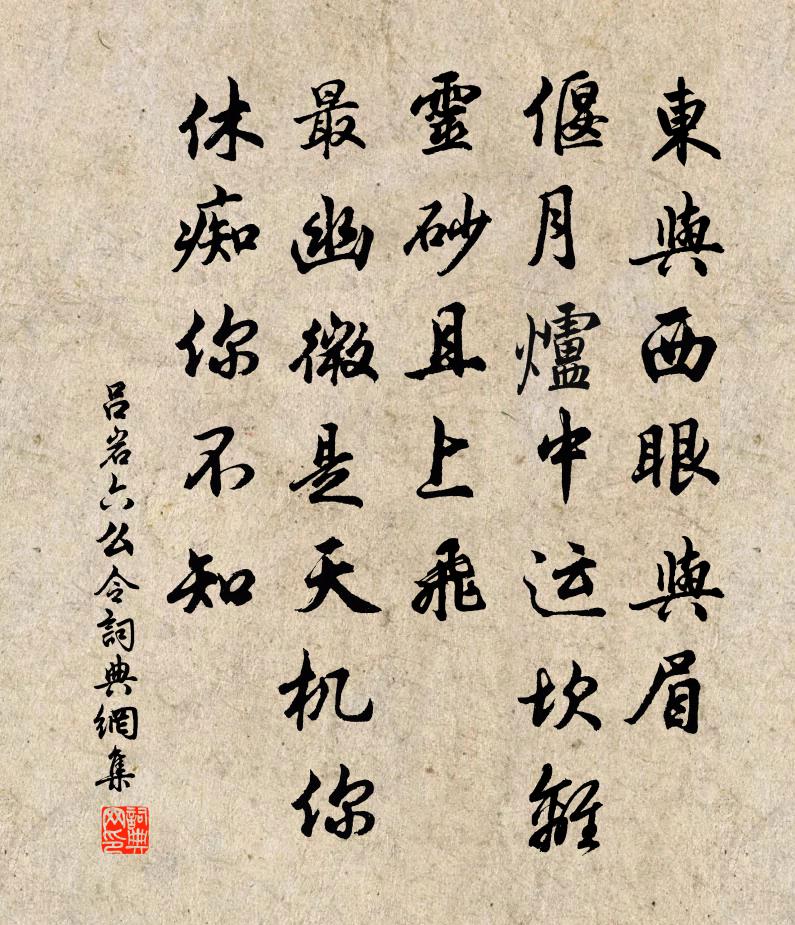 東與西眼與眉
偃月爐中运坎離
靈砂且上飛
最幽微是天机你
休痴你不知
吕岩六么令詞典網集
詞典网印